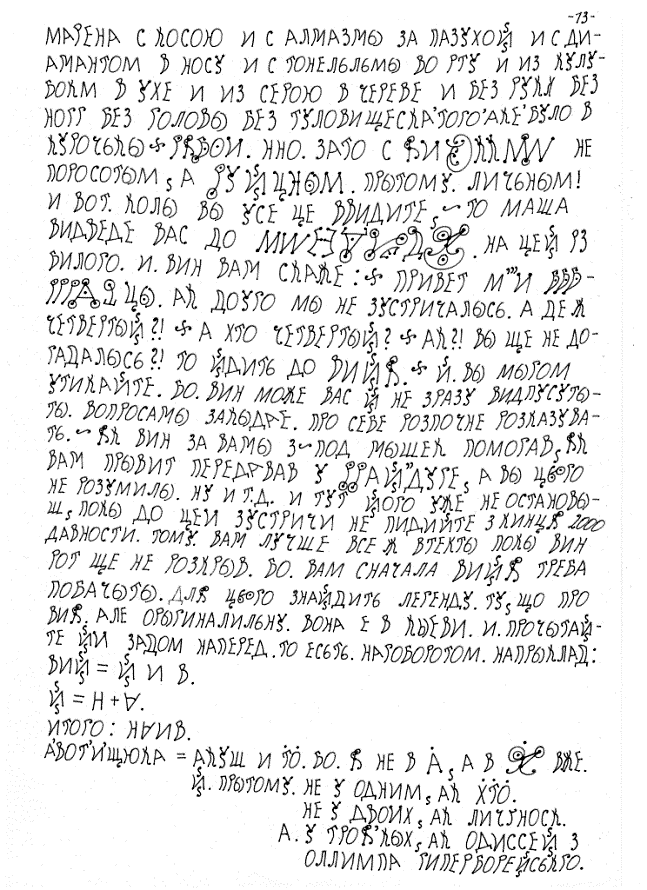 -13-
МАРЕНА С КОСОЮ И С АЛМАЗМЫ ЗА ПАЗУХОЙ И С ДИ-
АМАНТОМ В НОСУ И С ТОНЕЛЬЛЬМЫ ВО РТУ И ИЗ КУЛУ-
БОКМ В УХЕ И ИЗ СЕРОЮ В ЧЕРЕВЕ И БЕЗ РУКК БЕЗ
НОГГ БЕЗ ГОЛОВЫ БЕЗ ТУЛОВИЩЕСКА'ТОГО'АКЕ'БУЛО В
КУРОЧЬКЫ ННО. ЗАТО С НЕ
ПОРОСОТЫМ, А ПРЫТОМУ. ЛИЧЬНЫМ!
И ВОТ. КОЛЫ ВЫ УСЕ ЦЕ ВВИДИТЕ, ~ ТО МАША
ВИДВЕДЕ ВАС ДО НА ЦЕЙ РЗ
ВИЛОГО. И. ВИН ВАМ СКАЖЕ: ПРИВЕТ М'''И ВВВ-
ЦЫ. АК ДОУГО МЫ НЕ ЗУСТРИЧАЛЫСЬ. А ДЕ Ж
ЧЕТВЕРТЫЙ?! А ХТО ЧЕТВЕРТЫЙ? АК?! ВЫ ЩЕ НЕ ДО-
ГАДАЛЫСЬ?! ТО ЙДИТЬ ДО ВИЙЯ. Й. ВЫ МЫГОМ
УТИКАЙТЕ. БО. ВИН МОЖЕ ВАС Й НЕ ЗРАЗУ ВИДПУСУТЫ-
ТЫ. ВОПРОСАМЫ ЗАКЫДАЕ. ПРО СЕБЕ РОЗПОЧНЕ РОЗКАЗУВА-
ТЬ. ~ ЯК ВИН ЗА ВАМЫ З~ПОД МЫШЕК ПОМОГАВ, ЯК
ВАМ ПРЫВИТ ПЕРЕДАВАВ У А ВЫ ЦЬОГО
НЕ РОЗУМИЛЫ. НУ И Т.Д. И ТУТ ЙОГО УЖЕ НЕ ОСТАНОВЫ-
Ш, ПОКЫ ДО ЦЕИ ЗУСТРИЧИ НЕ ПИДИЙТЕ З КИНЦЯ 2000
ДАВНОСТИ. ТОМУ ВАМ ЛУЧШЕ ВСЕ Ж ВТЕКТЫ ПОКЫ ВИН
РОТ ЩЕ НЕ РОЗКРЫВ. БО. ВАМ СНАЧАЛА ВИЙЯ ТРЕБА
ПОБАЧЫТЫ. ДЛЯ ЦЬОГО ЗНАЙДИТЬ ЛЕГЕНДУ. ТУ, ЩО ПРО
ВИЯ. АЛЕ ОРЫГИНАЛИЛЬНУ. ВОНА Е В КЫЕВИ. И. ПРОЧЫТАЙ-
ТЕ ЙИИ ЗАДОМ НАПЕРЕД. ТО ЕСЬТЬ. НАОБОРОТОМ. НАПРЫКЛАД:
ВИЙ = Й И В.
Й = Н + ∀.
ИТОГО: Н∀ИВ.
А'ВОТ'И'ЩЮКА = АКУЩ И ТО. БО. Я НЕ В А, А В ВЖЕ.
Й. ПРЫТОМУ. НЕ У ОДНИМ, АК ХТО.
НЕ У ДВОИХ, АК ЛИЧУНОСК.
А. У ТРОЯ'КЫХ, АК ОДИССЕЙ З
ОЛЛИМПА ГИПЕРБОРЕЙСЬКГО.